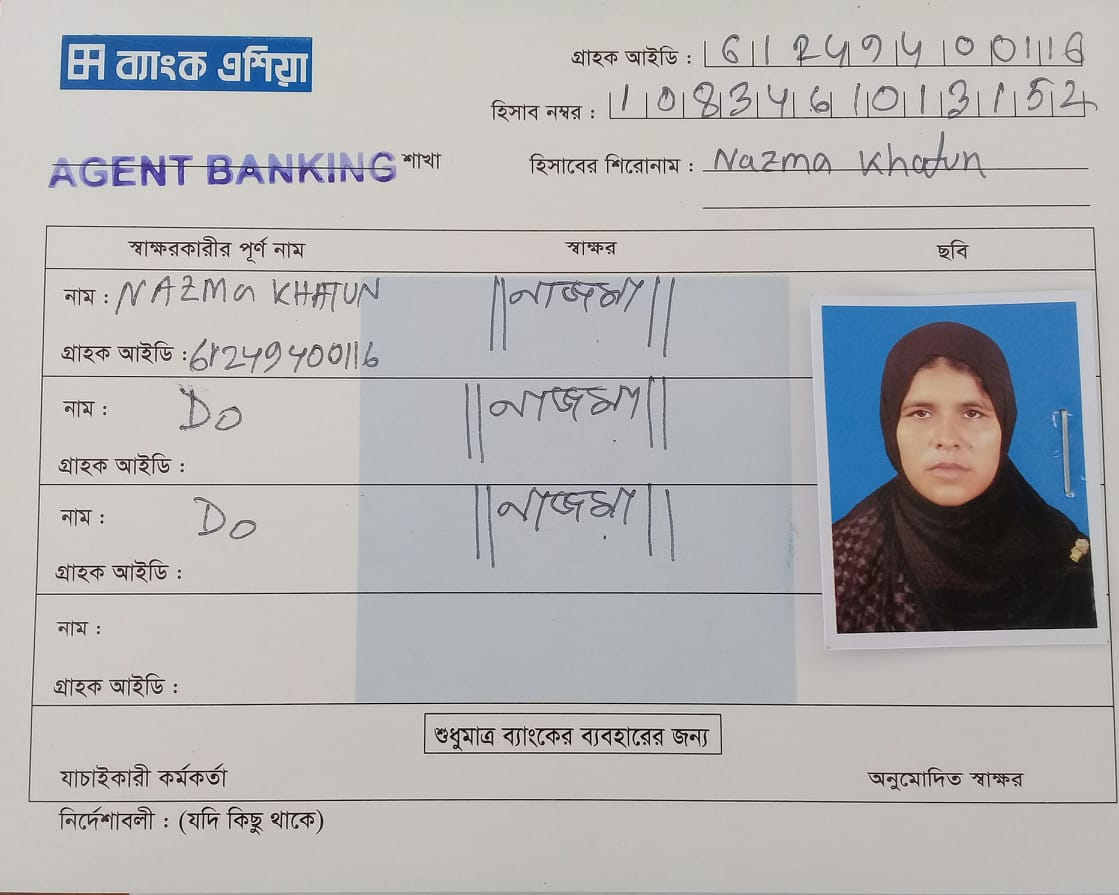 ব্যাংক এশিয়া
গ্রাহক আইডি : 61249400116
হিসাব নম্বর : 1083461013152
AGENT BANKING শাখা
হিসাবের শিরোনাম : Nazma Khatun
স্বাক্ষরকারীর পূর্ণ নাম স্বাক্ষর ছবি
নাম : NAZMa KHATUN ||নাজমা||
গ্রাহক আইডি : 61249400116
নাম : Do ||নাজমা||
গ্রাহক আইডি :
নাম : Do ||নাজমা||
গ্রাহক আইডি :
নাম :
গ্রাহক আইডি :
শুধুমাত্র ব্যাংকের ব্যবহারের জন্য
যাচাইকারী কর্মকর্তা অনুমোদিত স্বাক্ষর
নির্দেশাবলী : (যদি কিছু থাকে)